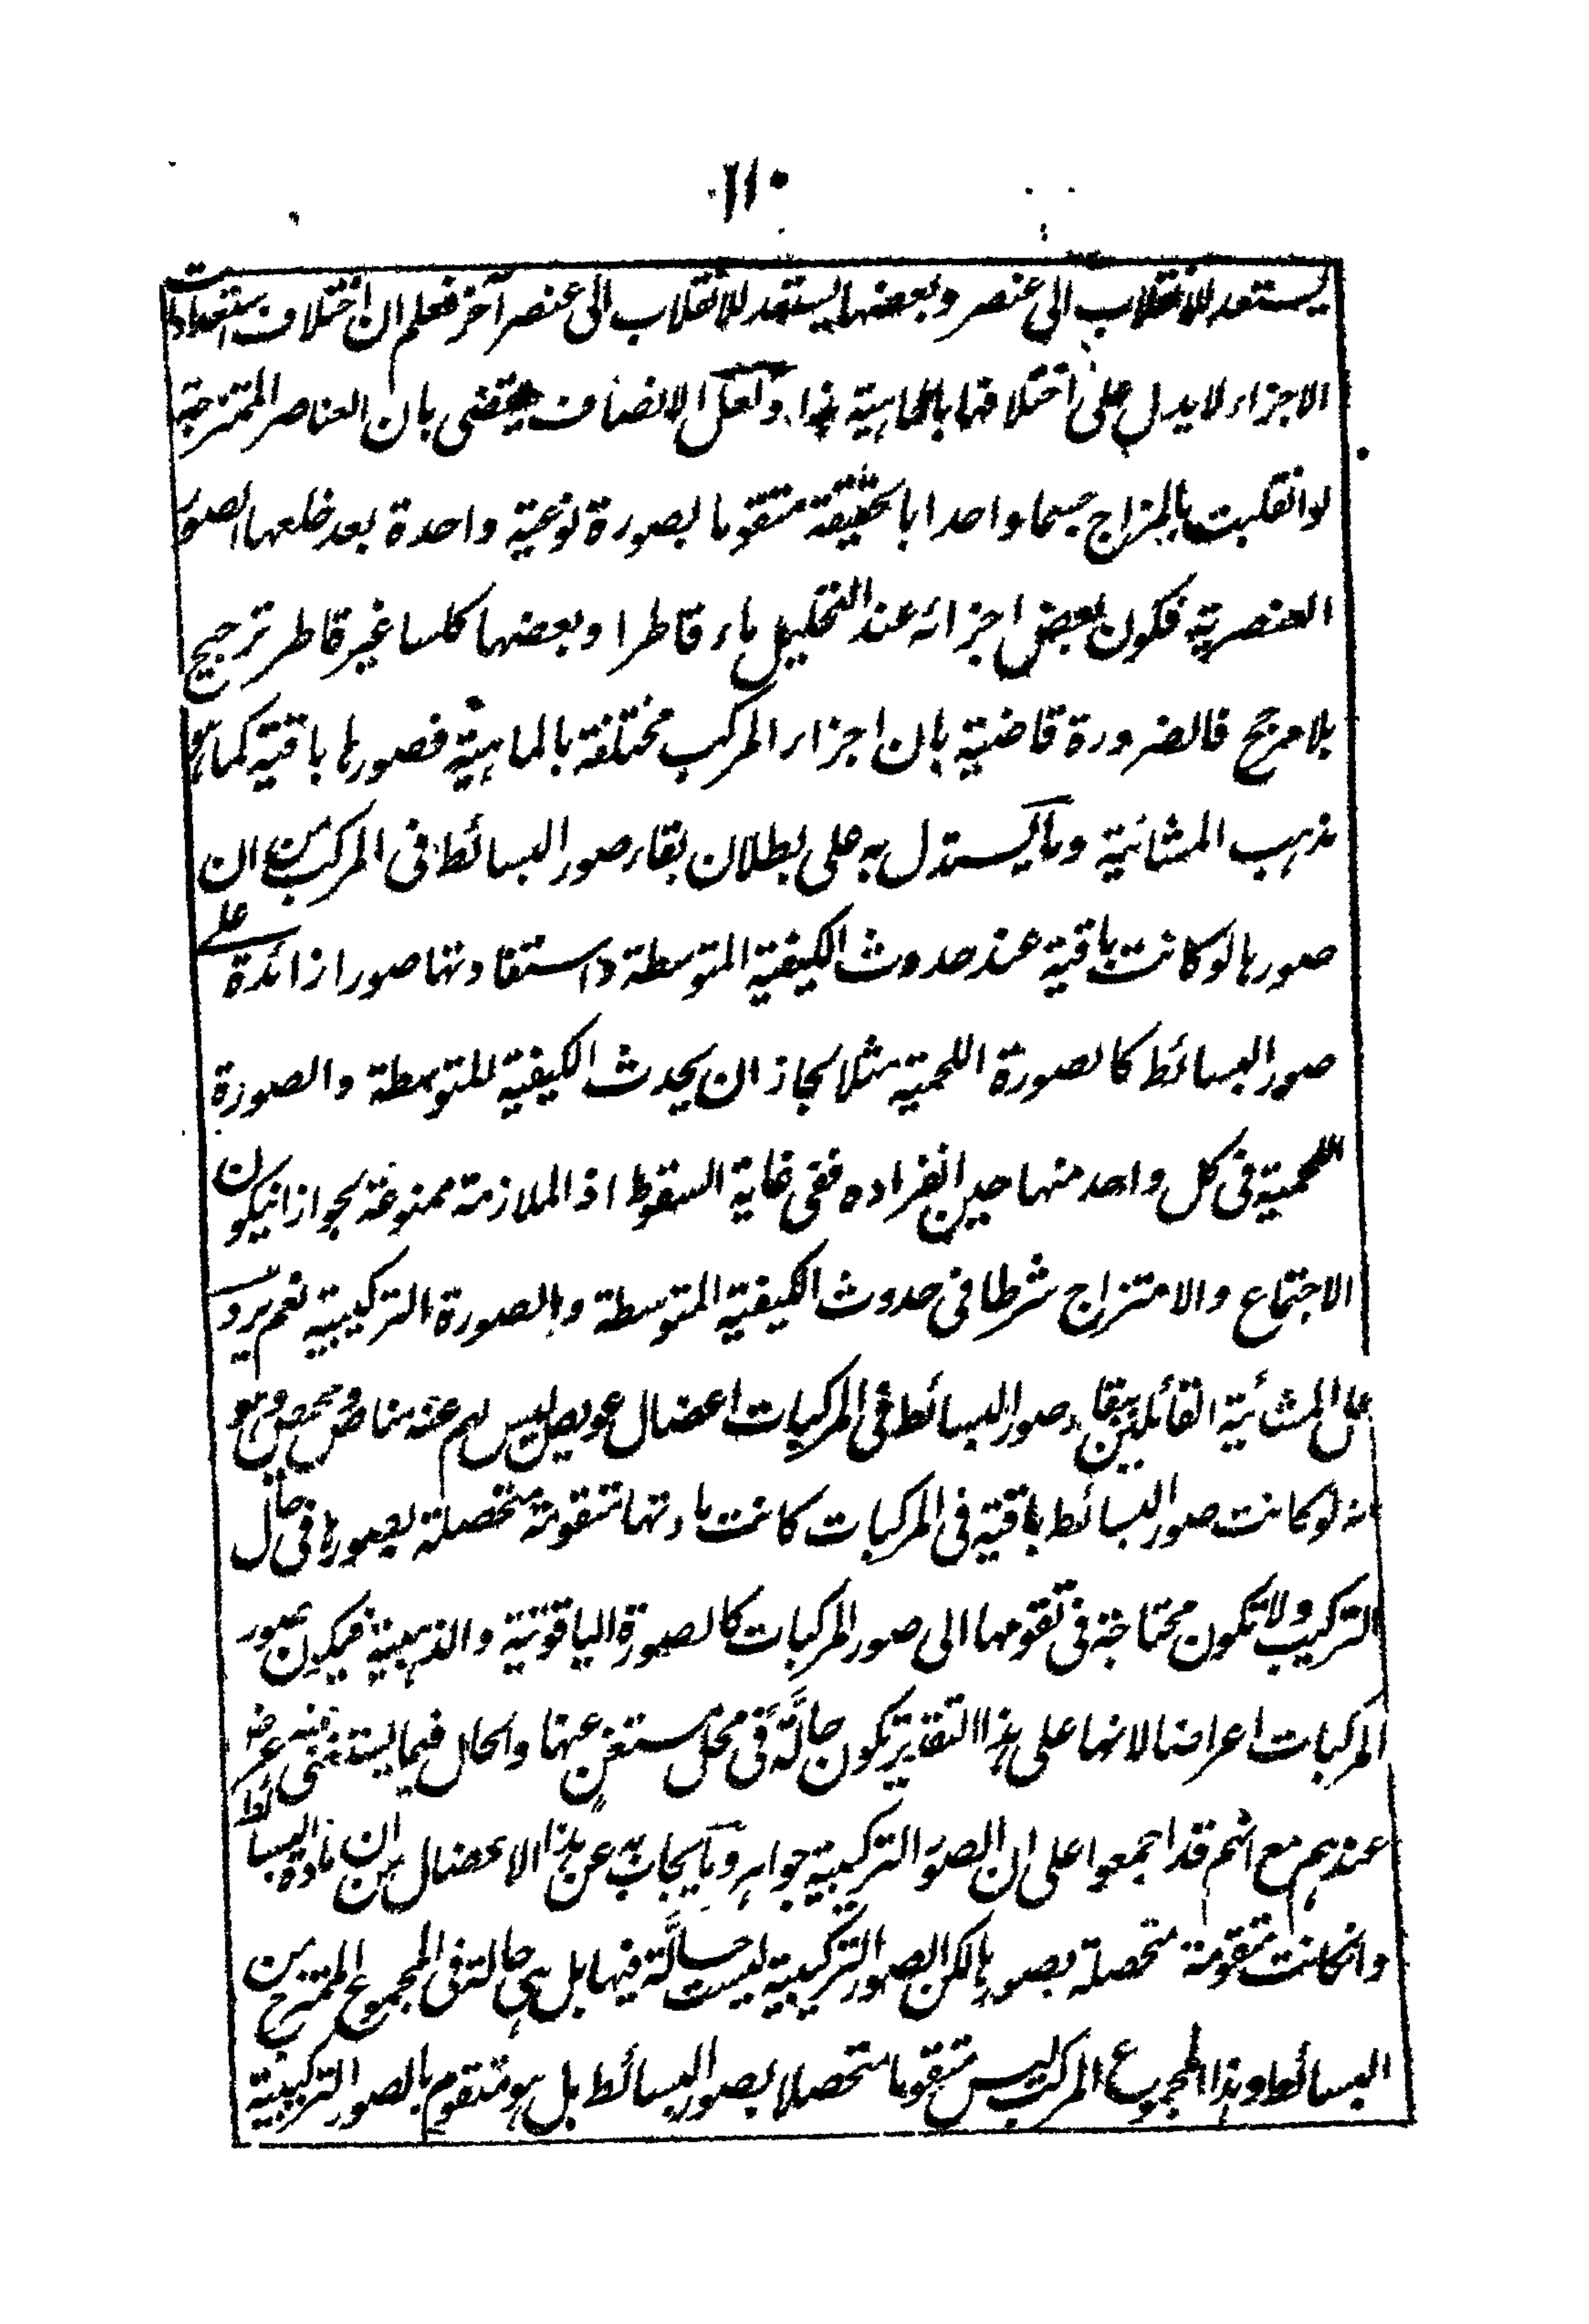 ١١٠
يستعد للانقلاب الى عنصر وبعضها يستعد للانقلاب الى عنصر آخر فعلم ان اختلاف استعدادات
الاجزاء لا يدل على اختلافها بالماهية هذا ولعل الانصاف يقتضى بان العناصر الممتزجة
لو انقلبت بالمزاج جسما واحدا بالحقيقة متقوما بصورة نوعية واحدة بعد خلعها الصور
العنصرية فكون بعض اجزائه عند التحليل ماء قاطرا وبعضها كلسا غير قاطر ترجيح
بلا مرجح فالضرورة قاضية بان اجزاء المركب مختلفة بالماهية فصورها باقية كما هو
مذهب المشائية وما يستدل به على بطلان بقاء صور البسائط فى المركب من ان
صورها لو كانت باقية عند حدوث الكيفية المتوسطة واستفادتها صورا زائدة على
صور البسائط كالصورة اللحمية مثلا لجاز ان يحدث الكيفية المتوسطة والصورة
اللحمية فى كل واحد منها حين انفراده ففى غاية السقوط اذ الملازمة ممنوعة لجواز ان يكون
الاجتماع والامتزاج شرطا فى حدوث الكيفية المتوسطة والصورة التركيبية نعم يرد
على المشائية القائلين ببقاء صور البسائط فى المركبات اعضال عويص ليس لهم عنه مناص ومحيص وهو
انه لو كانت صور البسائط باقية فى المركبات كانت مادتها متقومة متحصلة بصورها فى حال
التركيب ولا تكون محتاجة فى تقومها الى صور المركبات كالصورة الياقوتية والذهبية فيكون صور
المركبات اعراضا لانها على هذا التقدير تكون حالّة فى محل مستغن عنها والحال فيما يستغنى عنه عرض
عندهم مع انهم قد اجمعوا على ان الصور التركيبية جواهر وما يجاب به عن هذا الاعضال من ان مادة البسائط
وان كانت متقومة متحصلة بصورها لكن الصور التركيبية ليست حالّة فيها بل هى حالة فى المجموع الممتزج من
البسائط وهذا المجموع المركب ليس متقوما متحصلا بصور البسائط بل هو متقوم بالصور التركيبية